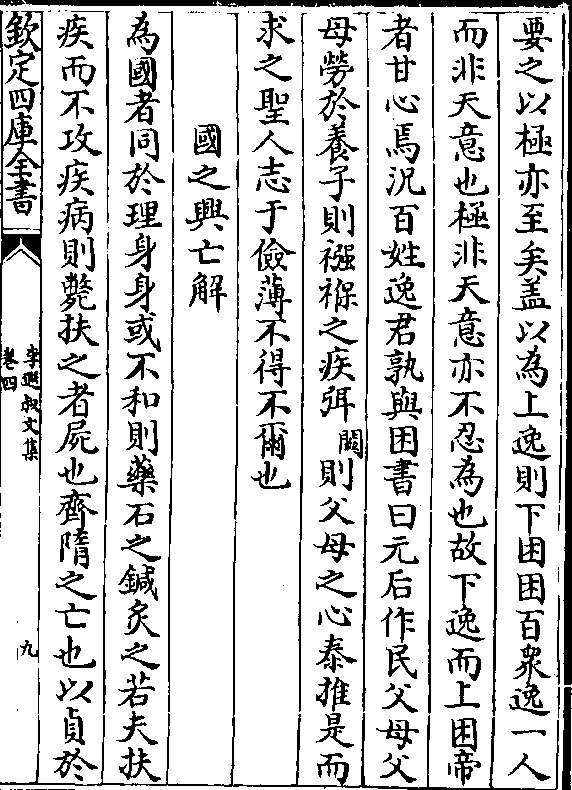 要之以極亦至矣盖以為上逸則下困困百衆逸一人
而非天意也極非天意亦不忍為也故下逸而上困帝
者甘心焉況百姓逸君孰與困書曰元后作民父母父
母勞於養子則襁褓之疾弭闕則父母之心泰推是而
求之聖人志于儉薄不得不爾也
國之興亡解
為國者同於理身身或不和則藥石之鍼灸之若夫扶
疾而不攻疾病則斃扶之者屍也齊隋之亡也以貞於
欽定四庫全書
李遐叔文集
卷四
九